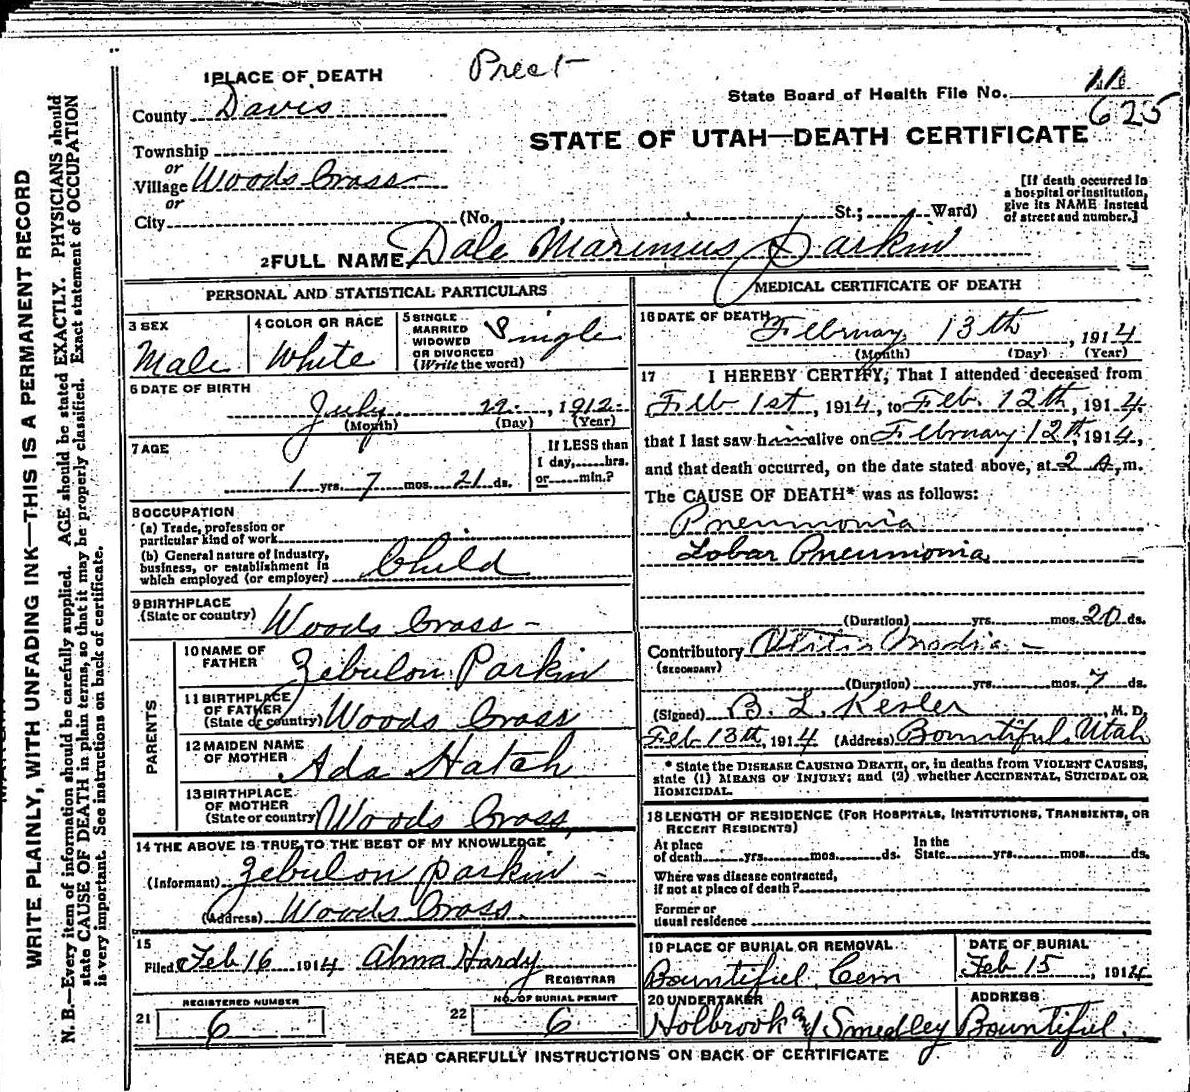 Prect
1 PLACE OF DEATH
County Davis
State Board of Health File No. 11
625
STATE OF UTAH—DEATH CERTIFICATE
Township
or
Village Woods Cross
or
City (No. , St.; Ward)
[If death occurred in a hospital or institution, give its NAME instead of street and number.]
2 FULL NAME Dale Marimus Parkin
PERSONAL AND STATISTICAL PARTICULARS
3 SEX Male
4 COLOR OR RACE White
5 SINGLE MARRIED WIDOWED OR DIVORCED (Write the word) Single
6 DATE OF BIRTH
July 22 , 1912
(Month) (Day) (Year)
7 AGE
1 yrs. 7 mos. 21 ds.
If LESS than
1 day,......hrs.
or......min.?
8 OCCUPATION
(a) Trade, profession or particular kind of work
(b) General nature of industry, business, or establishment in which employed (or employer) Child
9 BIRTHPLACE (State or country) Woods Cross -
PARENTS
10 NAME OF FATHER Zebulon Parkin
11 BIRTHPLACE OF FATHER (State or country) Woods Cross
12 MAIDEN NAME OF MOTHER Ada Hatch
13 BIRTHPLACE OF MOTHER (State or country) Woods Cross
14 THE ABOVE IS TRUE TO THE BEST OF MY KNOWLEDGE
(Informant) Zebulon Parkin -
(Address) Woods Cross.
15
Filed Feb 16 1914 Alma Hardy
REGISTRAR
21 REGISTERED NUMBER 6
22 NO. OF BURIAL PERMIT 6
MEDICAL CERTIFICATE OF DEATH
16 DATE OF DEATH February 13th , 1914
(Month) (Day) (Year)
17 I HEREBY CERTIFY, That I attended deceased from
Feb 1st , 1914, to Feb. 12th, 1914.
that I last saw him alive on February 12th 1914,
and that death occurred, on the date stated above, at 2 A.m.
The CAUSE OF DEATH* was as follows:
Pneumonia
Lobar Pneumonia
(Duration) yrs. mos. 20 ds.
Contributory Otitis Media -
(SECONDARY)
(Duration) yrs. mos. 7 ds.
(Signed) B. L. Kesler M. D.
Feb 13th, 1914 (Address) Bountiful, Utah
* State the DISEASE CAUSING DEATH, or, in deaths from VIOLENT CAUSES,
state (1) MEANS OF INJURY; and (2) whether ACCIDENTAL, SUICIDAL OR
HOMICIDAL.
18 LENGTH OF RESIDENCE (FOR HOSPITALS, INSTITUTIONS, TRANSIENTS, OR
RECENT RESIDENTS)
At place of death......yrs......mos......ds. In the State......yrs......mos......ds.
Where was disease contracted,
if not at place of death?
Former or
usual residence
19 PLACE OF BURIAL OR REMOVAL
Bountiful, Cem
DATE OF BURIAL
Feb 15 , 1914
20 UNDERTAKER
Holbrook and Smedley
ADDRESS
Bountiful.
READ CAREFULLY INSTRUCTIONS ON BACK OF CERTIFICATE
WRITE PLAINLY, WITH UNFADING INK—THIS IS A PERMANENT RECORD
N. B.—Every item of information should be carefully supplied. AGE should be stated EXACTLY. PHYSICIANS should
state CAUSE OF DEATH in plain terms, so that it may be properly classified. Exact statement of OCCUPATION
is very important. See instructions on back of certificate.